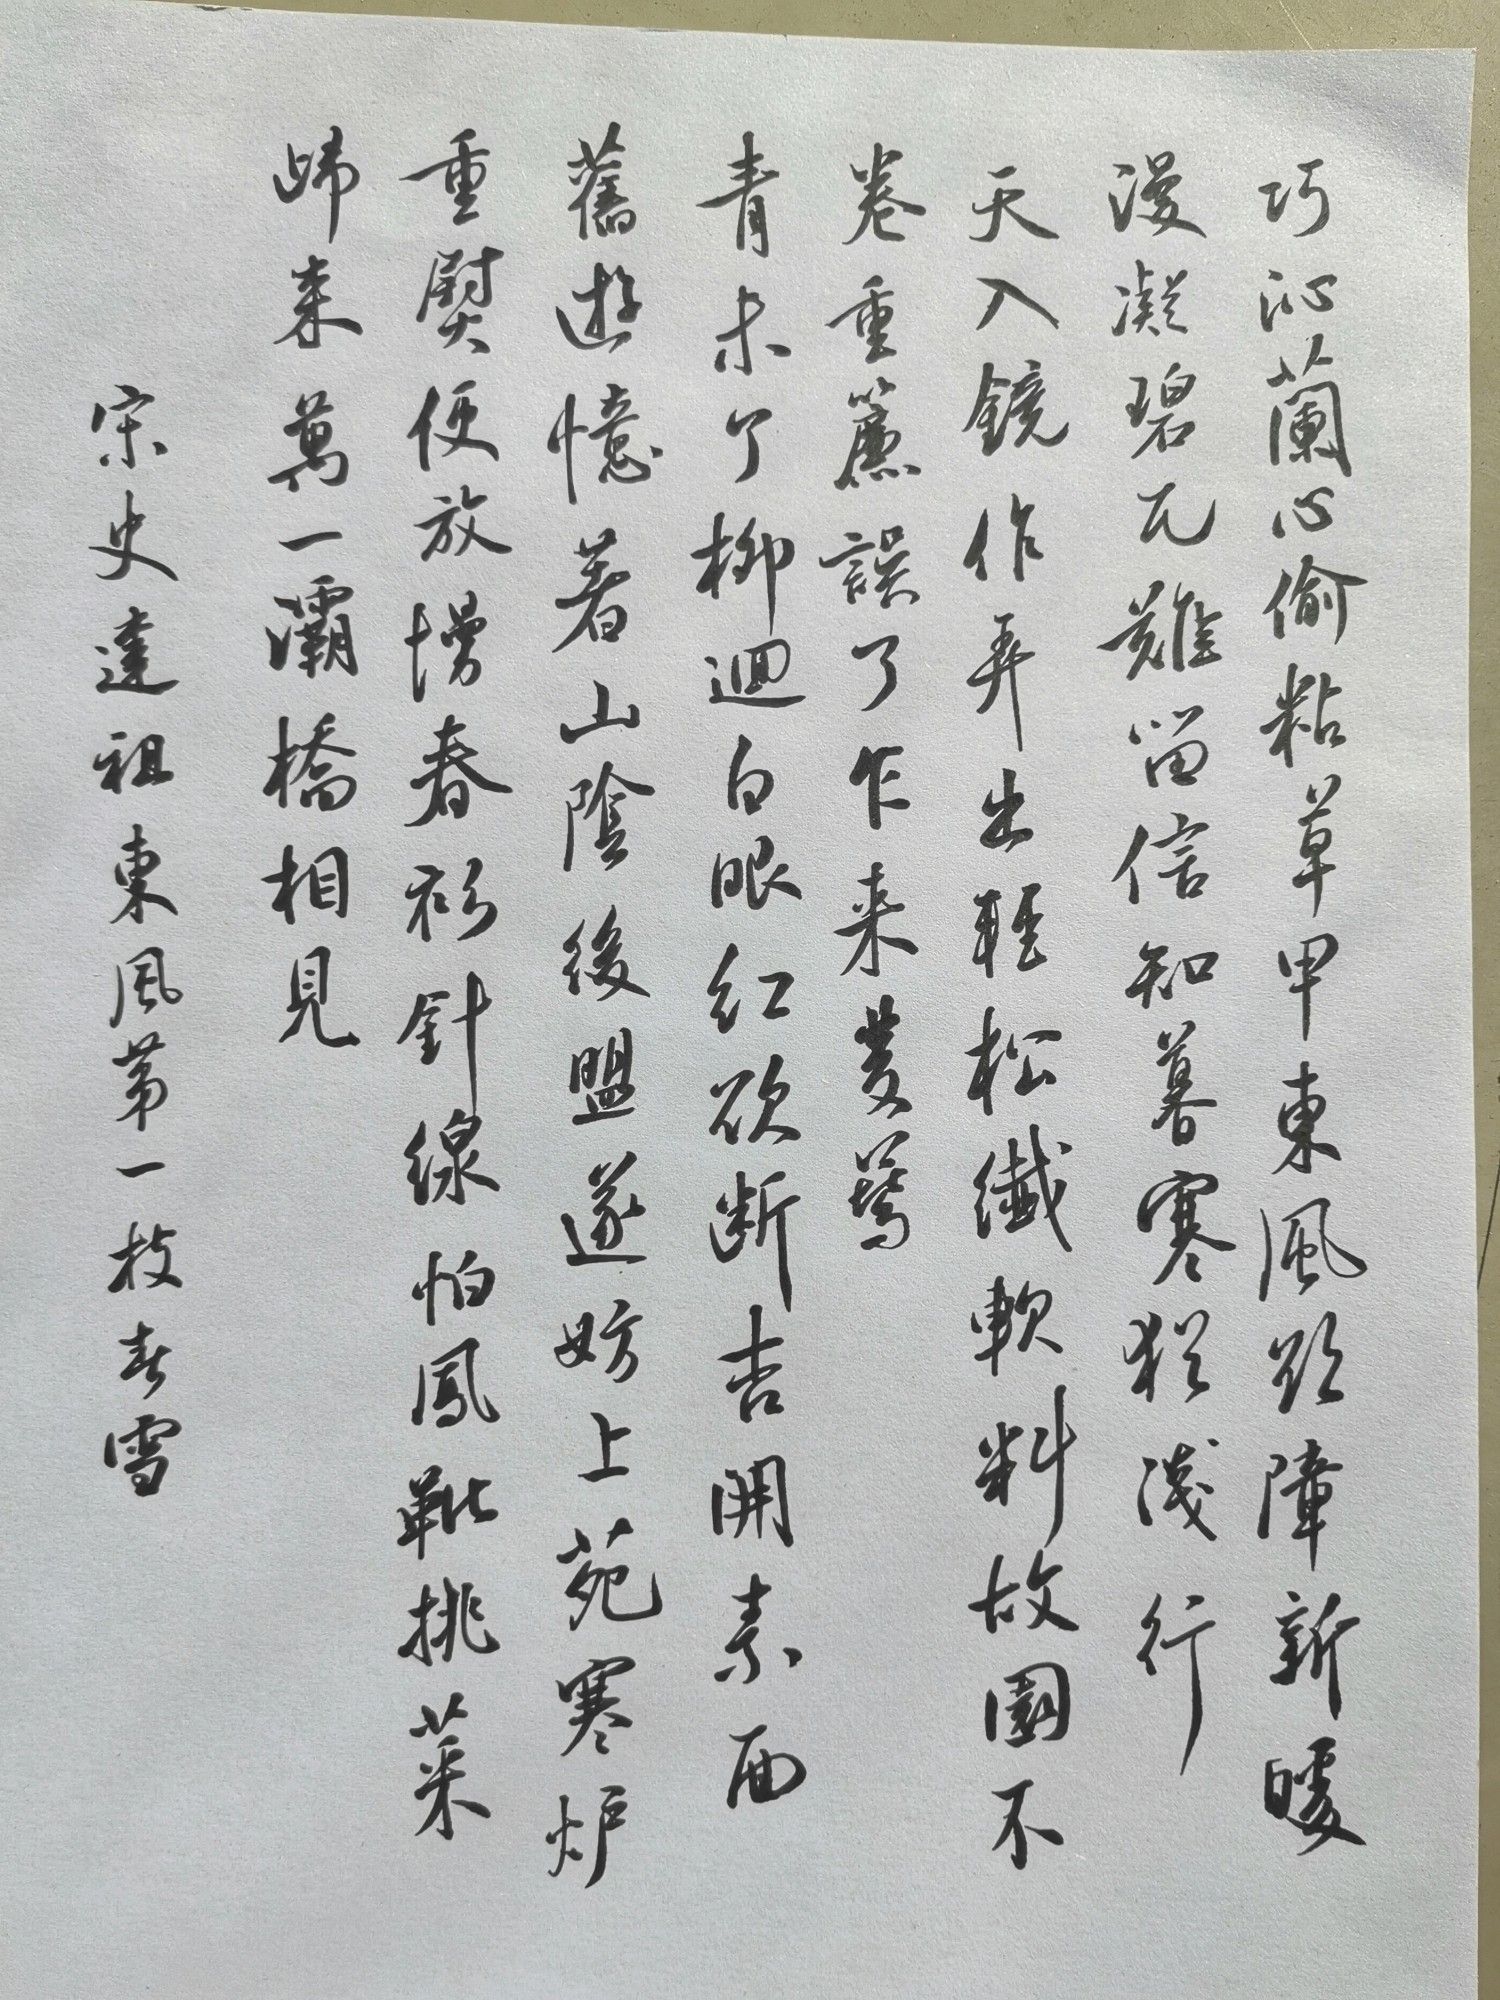 巧沁蘭心偷粘草甲東風欲障新暖
漫凝碧瓦難留信知暮寒猶淺行
天入鏡作弄出輕松纖軟料故園不
卷重簾誤了乍来雙鶯
青未了柳迴白眼紅欲断杏開素面
舊遊憶著山陰後盟遂妨上苑寒炉
重熨便放慢春衫針線怕鳳靴挑菜
歸来萬一灞橋相見
宋史達祖東風第一枝春雪